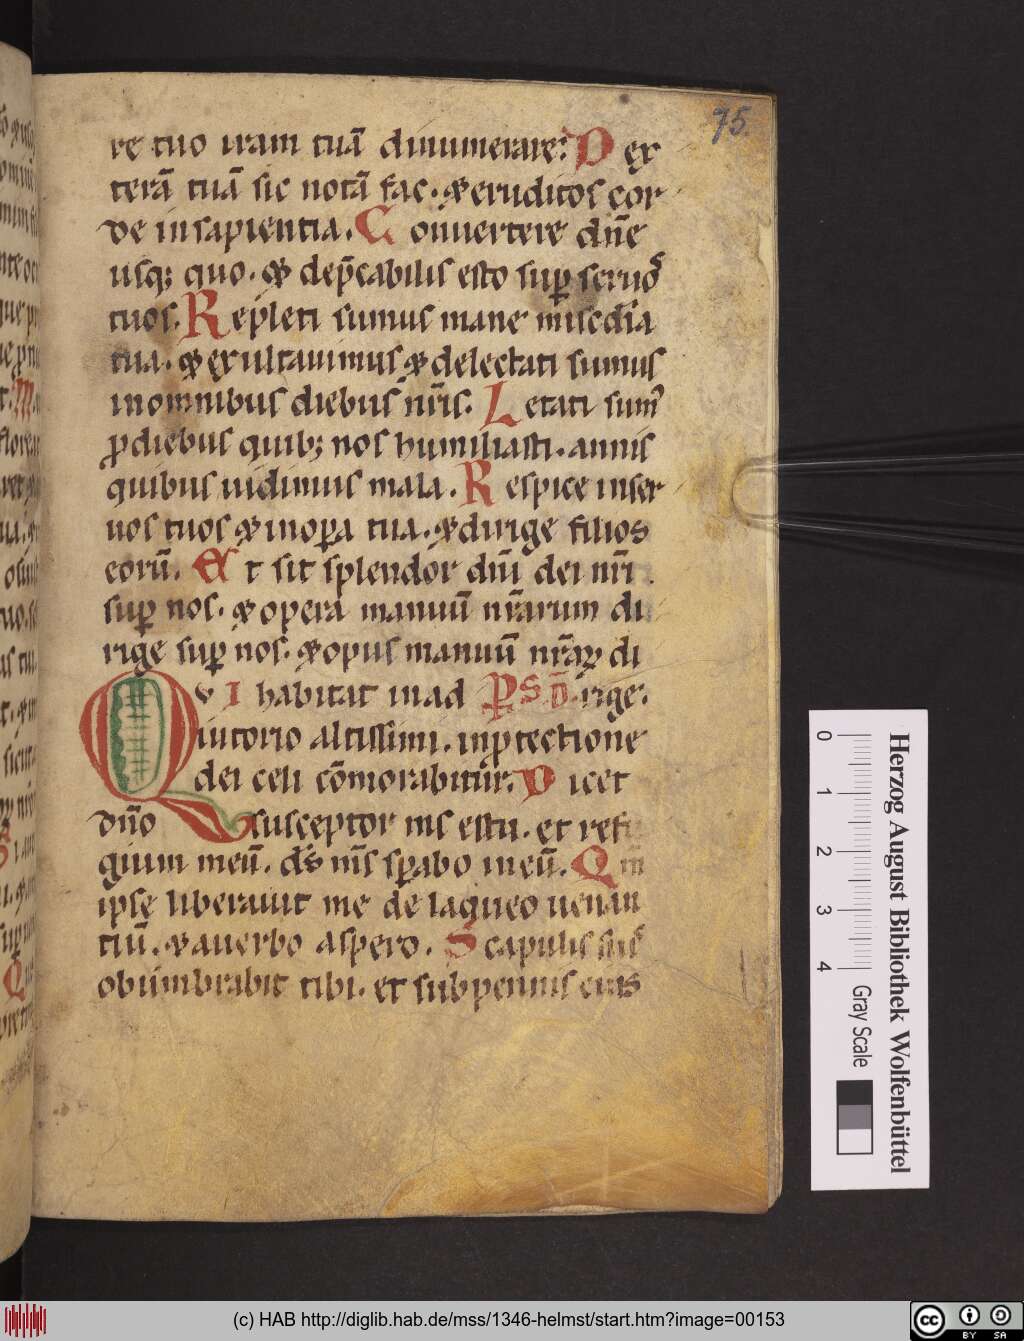 75
re tuo iram tuā dinumerare. Dex
terā tuā sic notā fac. & eruditos cor
de in sapientia. Conuertere dn̄e
usq; quo. & dep̄cabilis esto suꝑ seruos
tuos. Repleti sumus mane misc̄dia
tua. & exultauimus & delectati sumus
in omnibus diebus nr̄is. Letati sum᷒
ꝓ diebus quib; nos humiliasti. annis
quibus uidimus mala. Respice in ser
uos tuos & in oꝑa tua. & dirige filios
eorū. Et sit splendor dn̄i dei nr̄i.
suꝑ nos. & opera manuū nr̄arum di
rige suꝑ nos. & opus manuū nr̄aꝝ di
Qui habitat in ad P̄s D̄. rige.
iutorio altissimi. in ꝓtectione
dei celi cōmorabitur. Dicet
dn̄o susceptor ms estu. et refu
gium meū. ds̄ ms̄ sꝑabo in eū. Qm̄
ipse liberauit me de laqueo uenan
tiū. & a uerbo aspero. Scapulis suis
obumbrabit tibi. et sub pennis eius
Herzog August Bibliothek Wolfenbüttel
0 1 2 3 4 Gray Scale
(c) HAB http://diglib.hab.de/mss/1346-helmst/start.htm?image=00153
cc BY SA